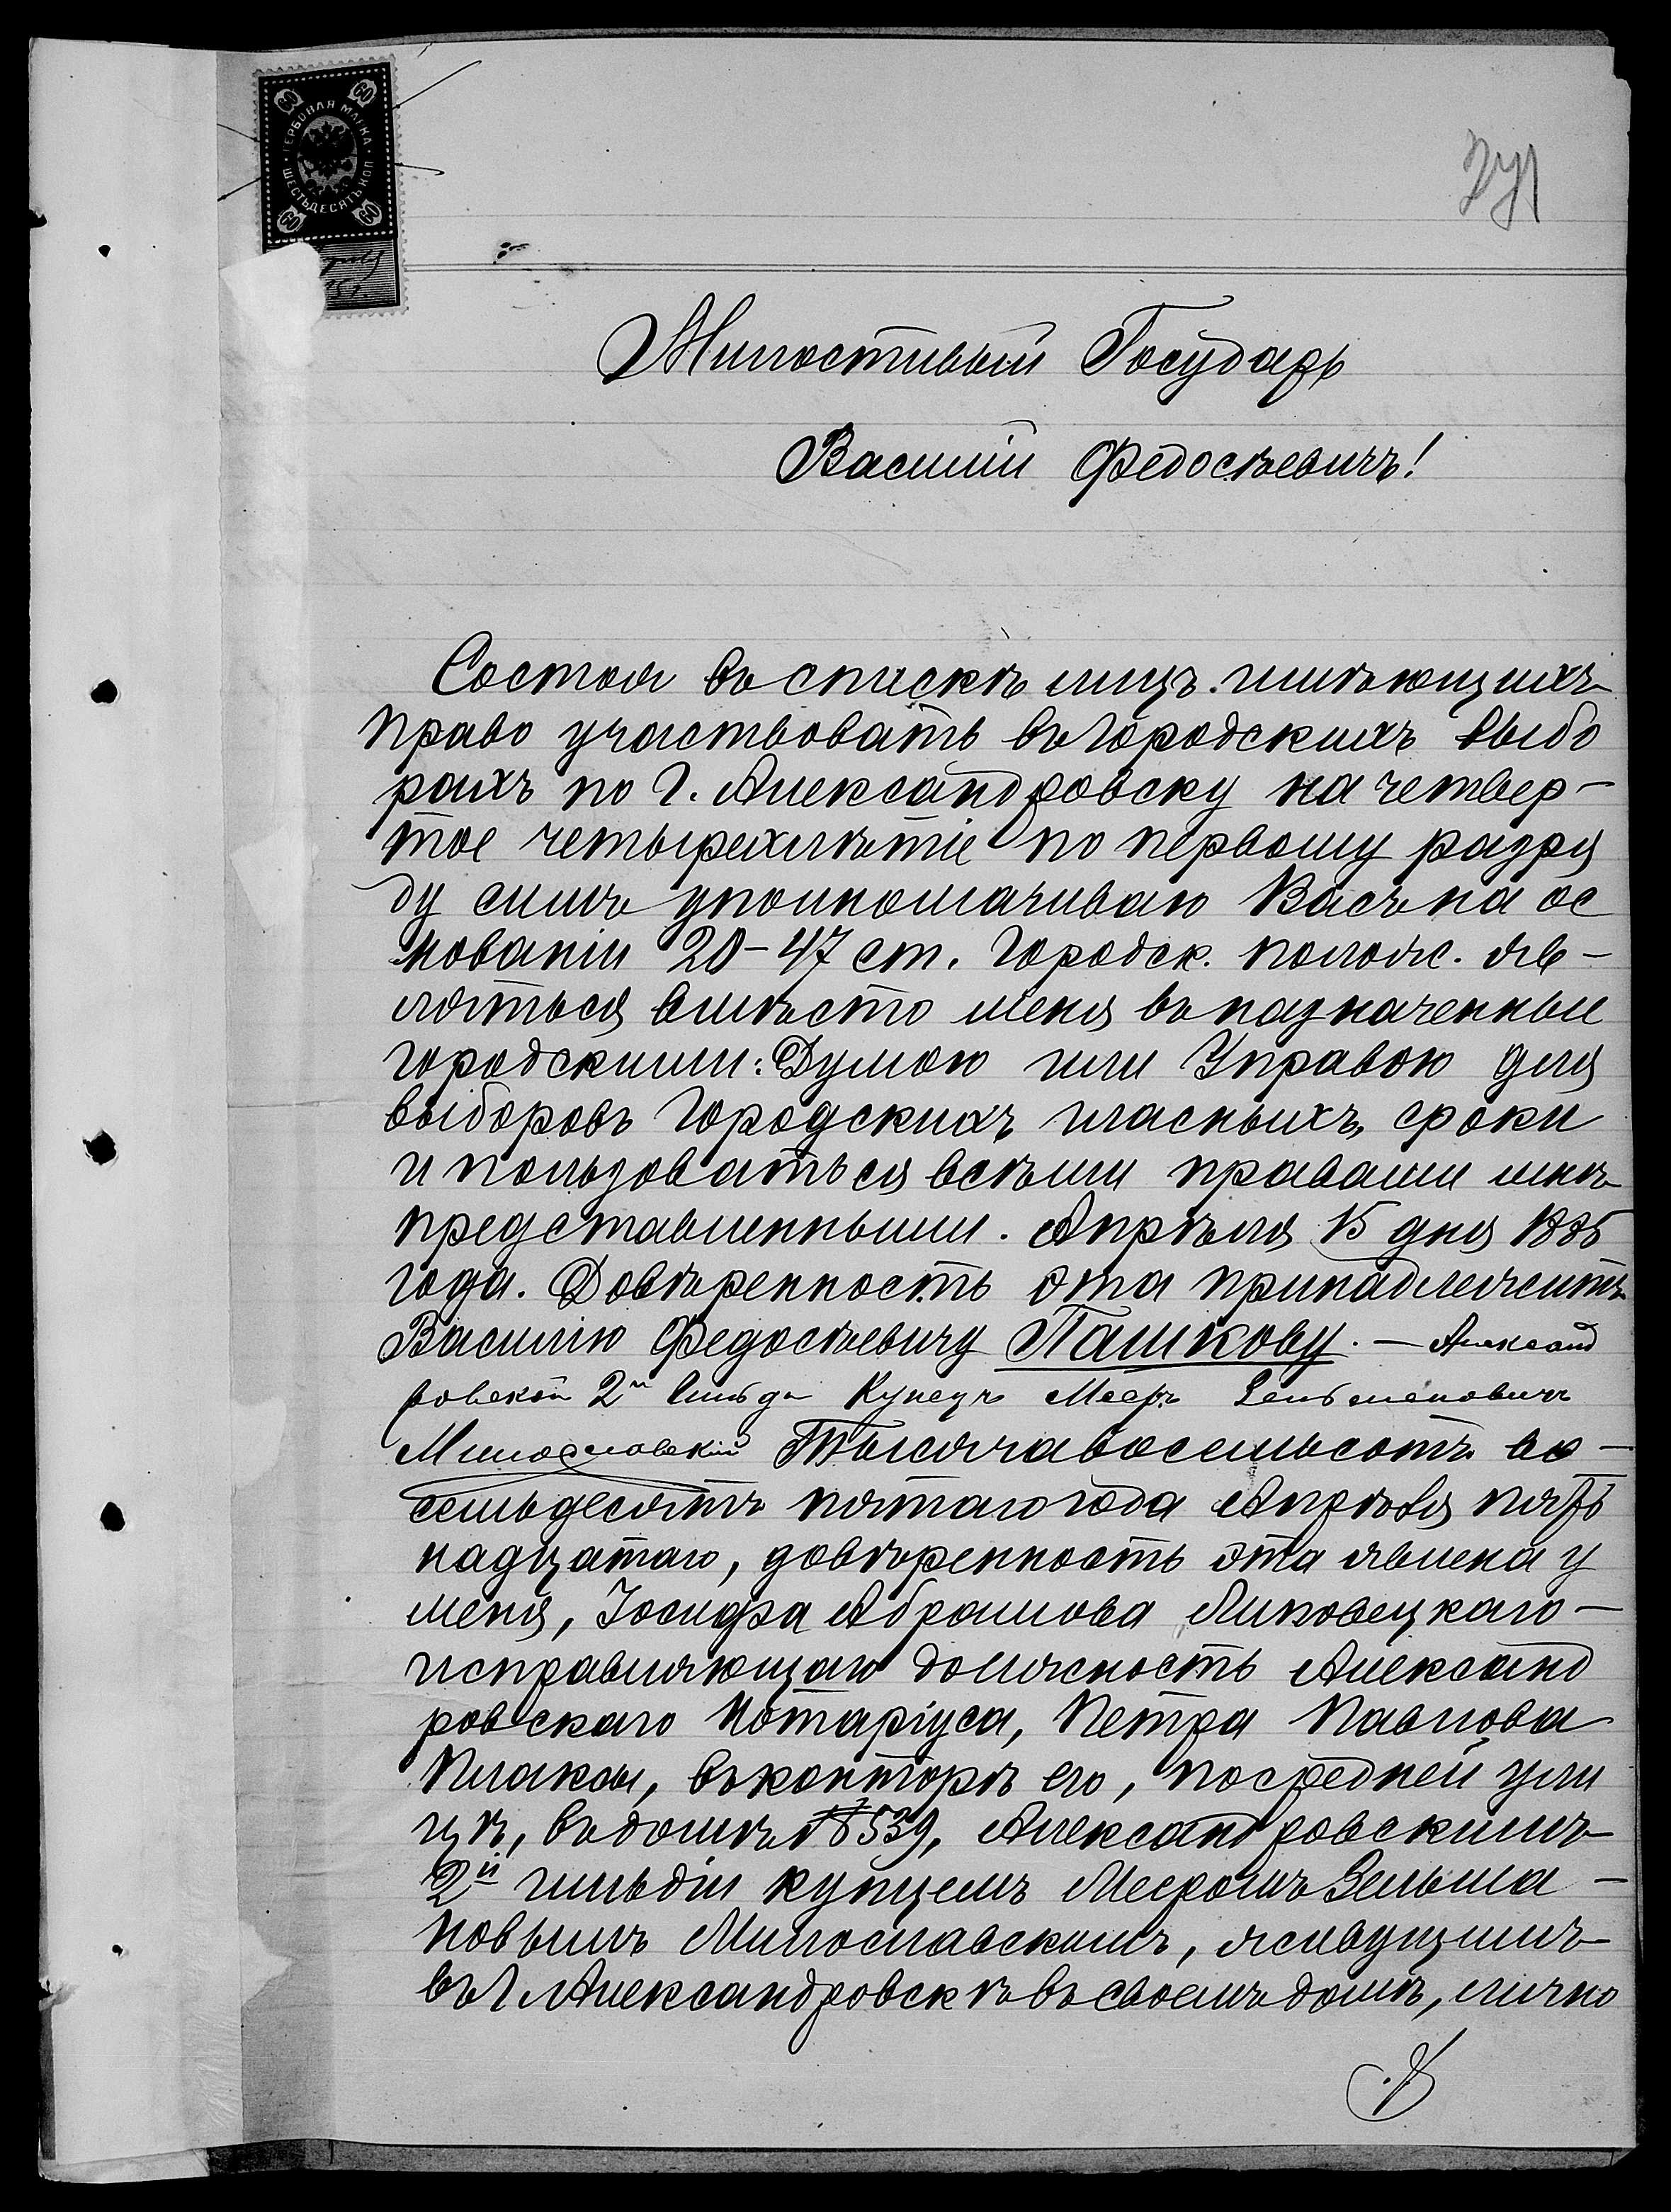 ГЕРБОВАЯ МАРКА
ШЕСТЬДЕСЯТЪ КОП
60 60
60 60
Милостивый Государь
Василій Федосѣевичъ!
Состоя въ спискѣ лицъ имѣющихъ
право участвовать въ городскихъ выбо
рахъ по г. Александровску на четвер-
тое четырехлѣтіе по первому разря
ду симъ уполномачиваю Васъ на ос
нованіи 20-47 ст. городск. полож. яв-
ляться вмѣсто меня въ назначенные
городскими: Думою или Управою для
выборовъ городскихъ гласныхъ, сроки
и пользоваться всѣми правами мнѣ
представленными. Апрѣля 15 дня 1885
года. Довѣренность эта принадлежитъ
Василію Федосѣевичу Пашкову. — Александ
ровскій 2й гильди Купецъ Мееръ Зельмановичъ
Милославскій Тысяча восемьсотъ во-
семьдесятъ пятаго года Апрѣля пят
надцатаго, довѣренность эта явлена у
меня, Іосифа Абрамова Липовецкаго-
исправляющаго должность Александ
ровскаго Нотаріуса, Петра Павлова
Плаксы, въ конторѣ его, по средней ули
цѣ, въ домѣ № 539, Александровскимъ
2й гильдіи купцемъ Мееромъ Зельма-
новымъ Милославскимъ, живущимъ
въ г. Александровскѣ въ своемъ домѣ, лично